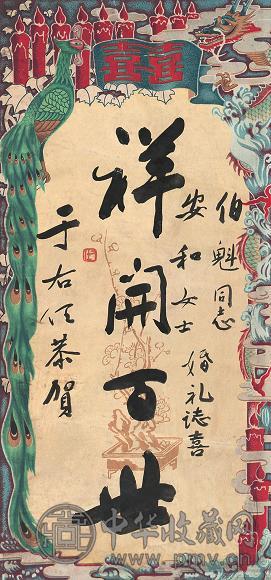 囍
伯魁同志
安和女士 婚礼誌喜
祥開百世
于右任恭賀
中华收藏网
www.pmv.cn